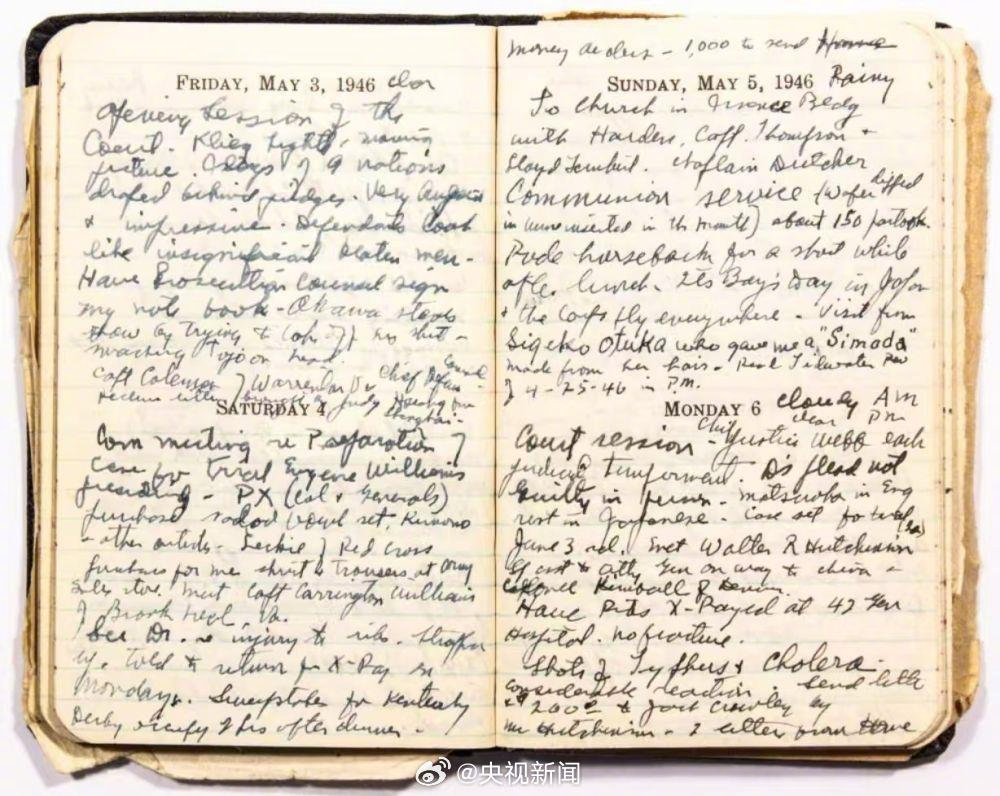 FRIDAY, MAY 3, 1946 clear
Opening Session of the
Court. Klieg lights, moving
picture. flags of 9 nations
draped behind judges. Very August
& impressive. Defendants look
like insignificant men.
Have Prosecution Counsel sign
my note book - Okawa steals
show by trying to take off his shirt -
smacking Tojo on head.
Capt Coleman Chief Defense Counsel
receive letter Judge from Shanghai
SATURDAY 4
Com meeting re Preparation of
case for trial Eugene Williams
presiding - PX (Col & Generals)
purchase salad bowl set, Kimono
& other articles - of Red Cross
purchases for me shirt & trousers at Army
Sales store. Meet Capt Carrington Williams
of Brook Va.
See Dr. re injury to ribs. Strapped
up. Told to return for X-Ray on
Monday. Sweepstakes for Kentucky
Derby after dinner -
money orders - 1,000 to send Home
SUNDAY, MAY 5, 1946 Rainy
To Church in Bldg
with Harders, Capt. Thompson &
Lloyd Chaplain Dutcher
Communion service (wafer dipped
in wine inserted in the mouth) about 150 partook.
Rode horseback for a short while
after lunch - It's Boy's Day in Japan
& the Carps fly everywhere - Visit from
Sigeko Otuka who gave me a "Simada"
made from her hair - Read
of 4-25-46 in P.M.
MONDAY 6 cloudy AM
clear PM
Court session - Chief Justice Webb each
judicial temperment. Ds plead not
Guilty in person - Matsuoka in Eng
rest in Japanese - Case set for trial
June 3rd. Met Walter R Hutchinson
Asst to Atty Gen on way to China -
Colonel Kimball of
Have Ribs X-Rayed at 42 Gen
Hospital. no fracture.
Shots of Typhus & Cholera -
considerable reaction. send letter
& 200 to by
Mr Hutchinson - 2 letters from Home
@央视新闻